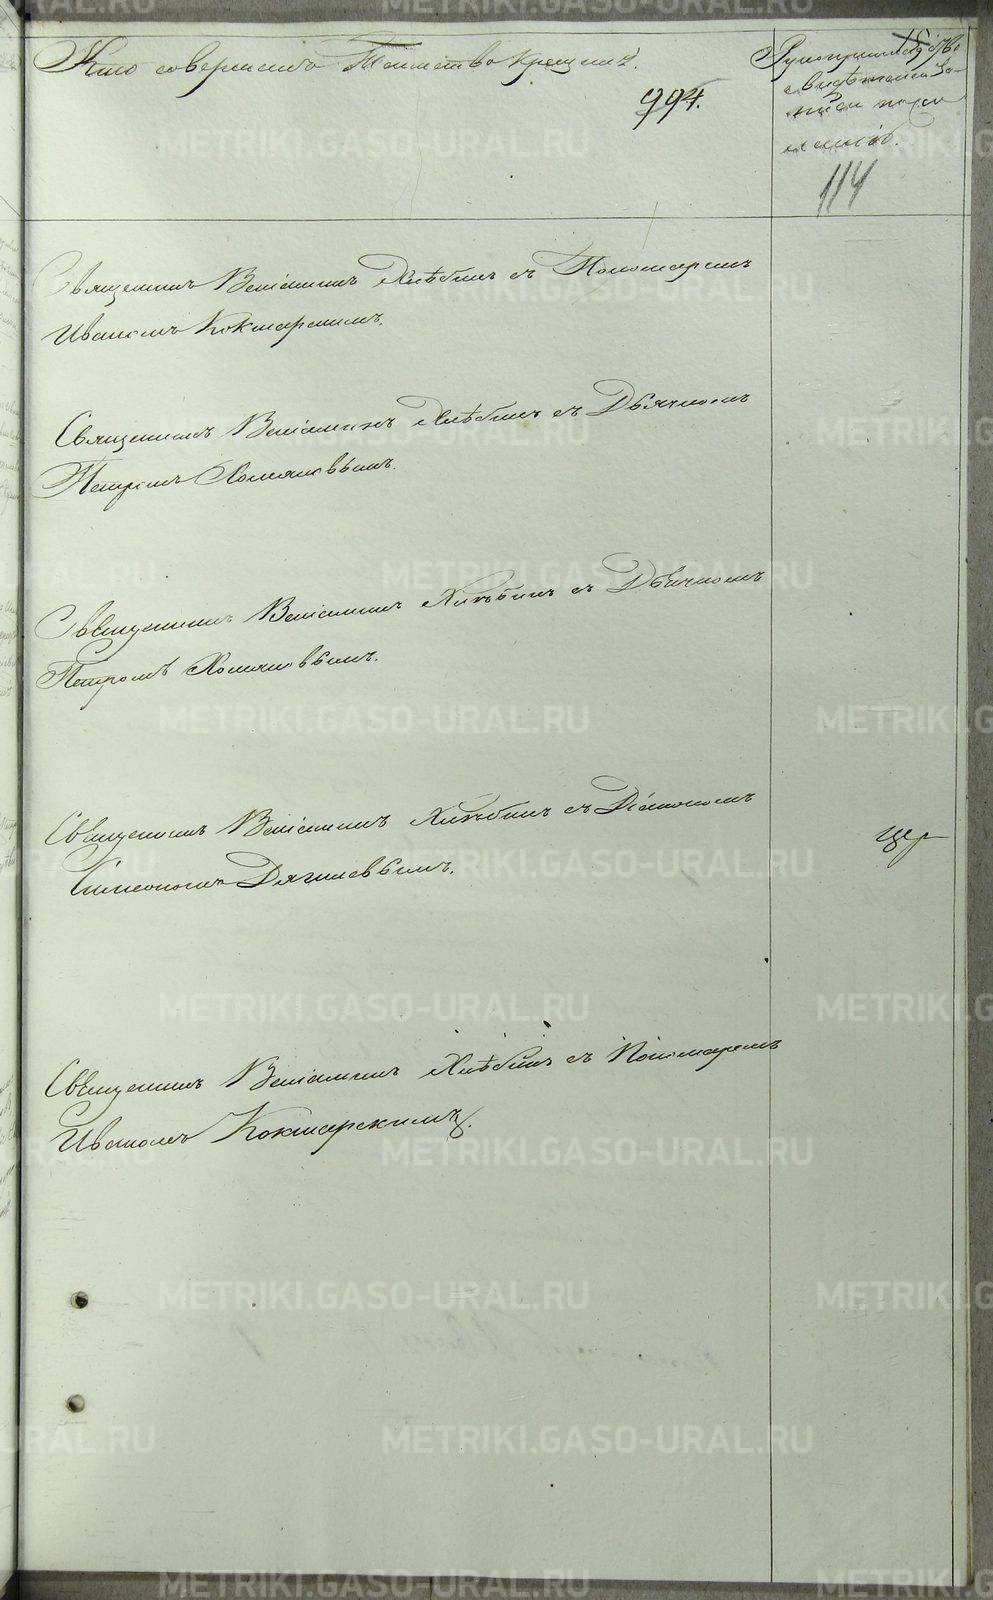 Кто совершалъ Таинство крещенiя.
994.
Рукоприкладство
свидѣтелей за-
писи по же-
ланiю.
114
Священникъ Венiаминъ Хлѣбинъ съ Пономаремъ
Иваномъ Кокшарскимъ.
Священникъ Венiаминъ Хлѣбинъ съ Дьячкомъ
Петромъ Хомяковымъ.
Священникъ Венiаминъ Хлѣбинъ съ Дьячкомъ
Петромъ Хомяковымъ.
Священникъ Венiаминъ Хлѣбинъ съ Дiакономъ
Симеономъ Дягилевымъ.
Священникъ Венiаминъ Хлѣбинъ съ Пономаремъ
Иваномъ Кокшарскимъ.
METRIKI.GASO-URAL.RU